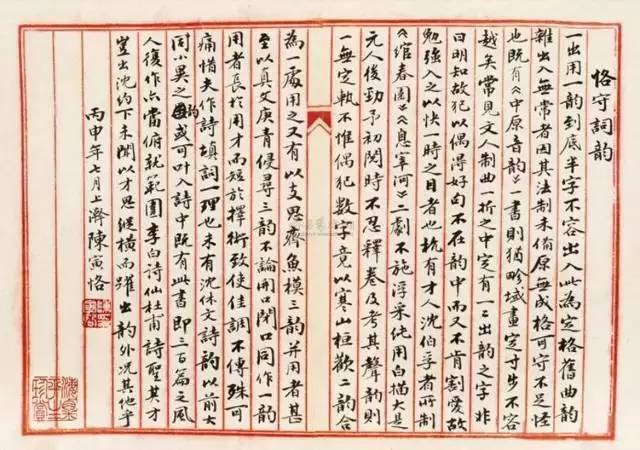 恪守詞韵
一出用一韵到底半字不容出入此為定格舊曲韵
雜出入無常者因其法制未備原無成格可守不足怪
也既有《中原音韵》書則猶畛域畫定寸步不容
越矣常見文人制曲一折之中定有一二出韵之字非
曰明知故犯以偶得好句不在韵中而又不肯割愛故
勉強入之以快一時之目者也杭有才人沈伯孚者所制
《綰春園》《息宰河》二劇不施浮采純用白描大是
元人後勁予初閱時不忍釋卷及考其聲韵則
一無定軌不惟偶犯數字竟以寒山桓歡二韵合
為一處用之又有以支思齊魚模三韵並用者甚
至以真文庚青侵尋三韵不論開口閉口同作一韵
用者長於用才而短於擇術致使佳調不傳殊可
痛惜夫作詩填詞一理也未有沈休文詩韵以前大
同小異之韵或可叶入詩中既有此書即三百篇之風
人復作亦當俯就範圍李白詩仙杜甫詩聖其才
豈出沈約下未聞以才思縱橫而躍出韵外況其他乎
丙申年七月上澣陳寅恪